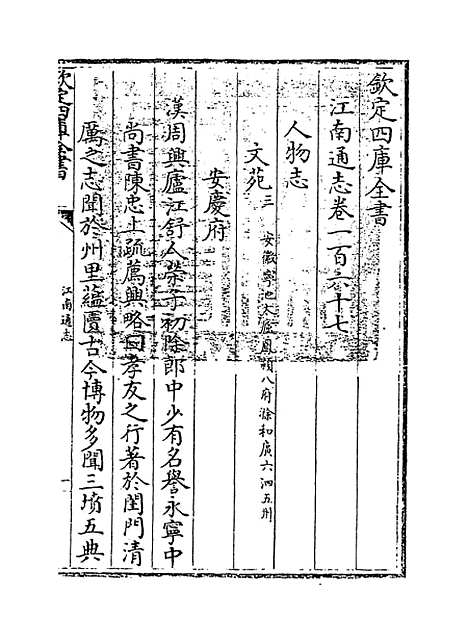 欽定四庫全書
江南通志卷一百六十七
人物志
文苑三 安徽寧池太廬鳳潁八府滁和廣六泗五州
安慶府
漢周興廬江舒人榮子初除郎中少有名譽永寧中
尚書陳忠上疏薦興略曰孝友之行著於閨門清
厲之志聞於州里蘊匵古今博物多聞三墳五典
欽定四庫全書
江南通志
一